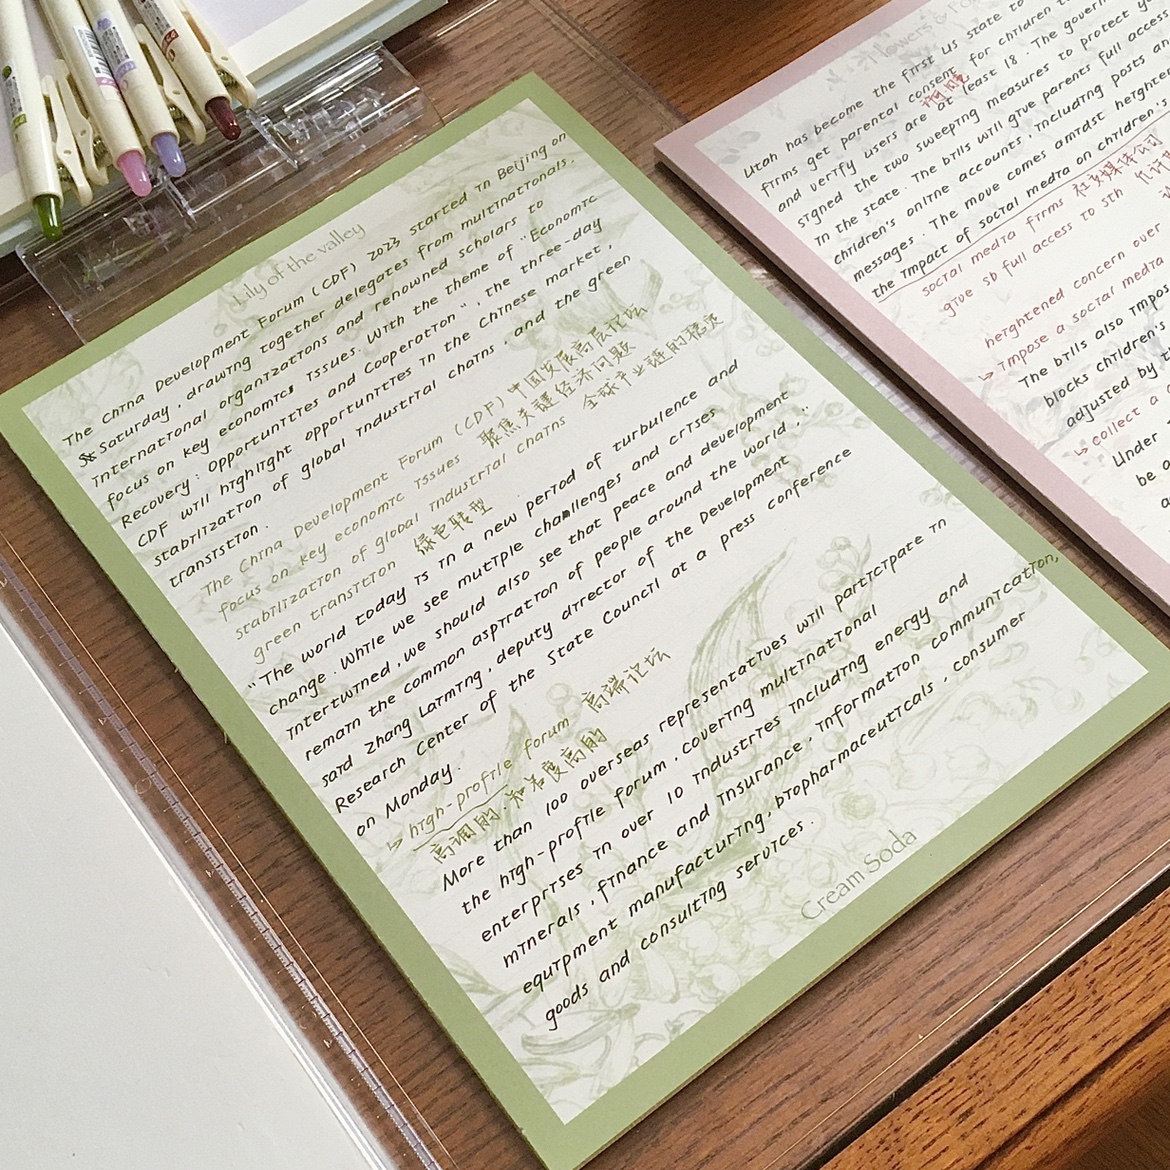 Lily of the valley
The China Development Forum (CDF) 2023 started in Beijing on
Saturday, drawing together delegates from multinationals,
international organizations and renowned scholars to
focus on key economics issues. With the theme of "Economic
Recovery: Opportunities and Cooperation", the three-day
CDF will highlight opportunities in the Chinese market,
stabilization of global industrial chains, and the green
transistion.
The China Development Forum (CDF) 中国发展高层论坛
focus on key economic issues 聚焦关键经济问题
stabilization of global industrial chains 全球产业链的稳定
green transition 绿色转型
"The world today is in a new period of turbulence and
change. While we see mutiple challenges and crises
intertwined, we should also see that peace and development
remain the common aspiration of people around the world,"
said Zhang Laiming, deputy director of the Development
Research Center of the State Council at a press conference
on Monday.
↳ high-profile forum 高端论坛
高调的、知名度高的
More than 100 overseas representatives will participate in
the high-profile forum, covering multinational
enterprises in over 10 industries including energy and
minerals, finance and insurance, information communication,
equipment manufacturing, biopharmaceuticals, consumer
goods and consulting services.
Cream Soda
Flowers &
Utah has become the first US state to
firms get parental consent for children
许可同意
and verify users are at least 18. The govern
signed the two sweeping measures to protect
in the state. The bills will give parents full access
children's online accounts, including posts and
messages. The move comes amidst heightened
the impact of social media on children's
social media firms 社交媒体公司
give sb full access to sth 允许
heightened concern over
↳ impose a social media
The bills also impos
blocks children's
adjusted by t
↳ collect a
Under
be a